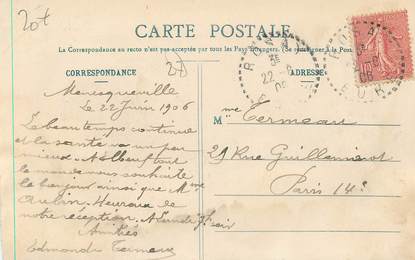 20f
CARTE POSTALE
La Correspondance au recto n'est pas acceptée par tous les Pays Etrangers. (Se renseigner à la Poste)
CORRESPONDANCE
ADRESSE
20
Menesqueville
Le 22 Juin 1906
Le beau temps continue
et la santé va un peu
mieux. tout le
monde vous souhaite
le bonjour ainsi que Mme
Aubin. Heureux de
notre réception. soir
Amitiés
Edmond Termeau
Mme Termeau
21 Rue Guilleminot
Paris 14e
22
EURE